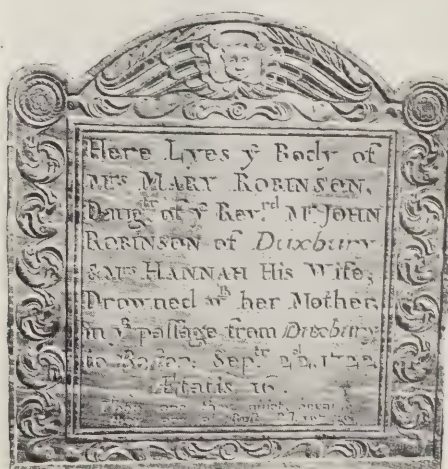 Here Lyes yᵉ Body of
Mʳˢ MARY ROBINSON,
Daugᵗʳ of yᵉ Rev.ʳᵈ Mʳ JOHN
ROBINSON of Duxbury
& Mʳˢ HANNAH His Wife;
Drowned wᵗʰ her Mother
in yᵉ paſſage from Duxbury
to Boſton. Sepᵗʳ 22ᵈ, 1722
Ætatis 16